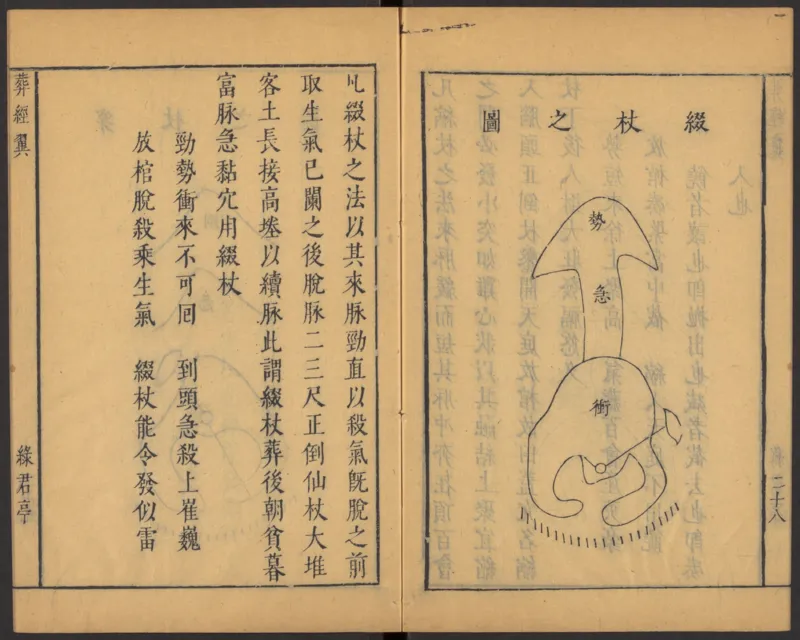 綴杖之圖
勢
急
衝
二十八
凡綴杖之法以其來脉勁直以殺氣旣脫之前
取生氣已闌之後脫脉二三尺正倒仙杖大堆
客土長接高墪以續脉此謂綴杖葬後朝貧暮
富脉急黏穴用綴杖
勁勢衝來不可囘 到頭急殺上崔巍
放棺脫殺乘生氣 綴杖能令發似雷
葬經翼
綠君亭